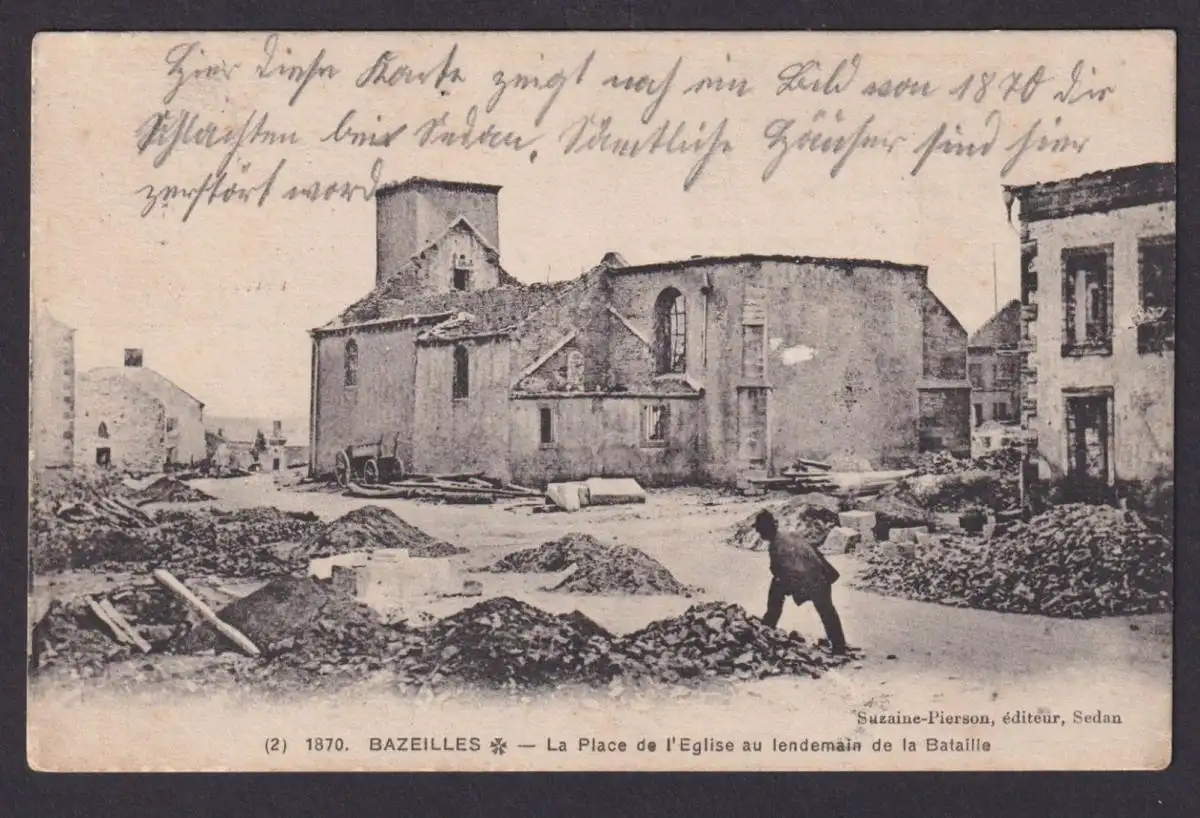 Hier diese Karte zeigt noch ein Bild von 1870 die
Schlachten bei Sedan. Sämtliche Häuser sind hier
zerstört word
Suzaine-Pierson, éditeur, Sedan
(2) 1870. BAZEILLES ✠ — La Place de l'Eglise au lendemain de la Bataille